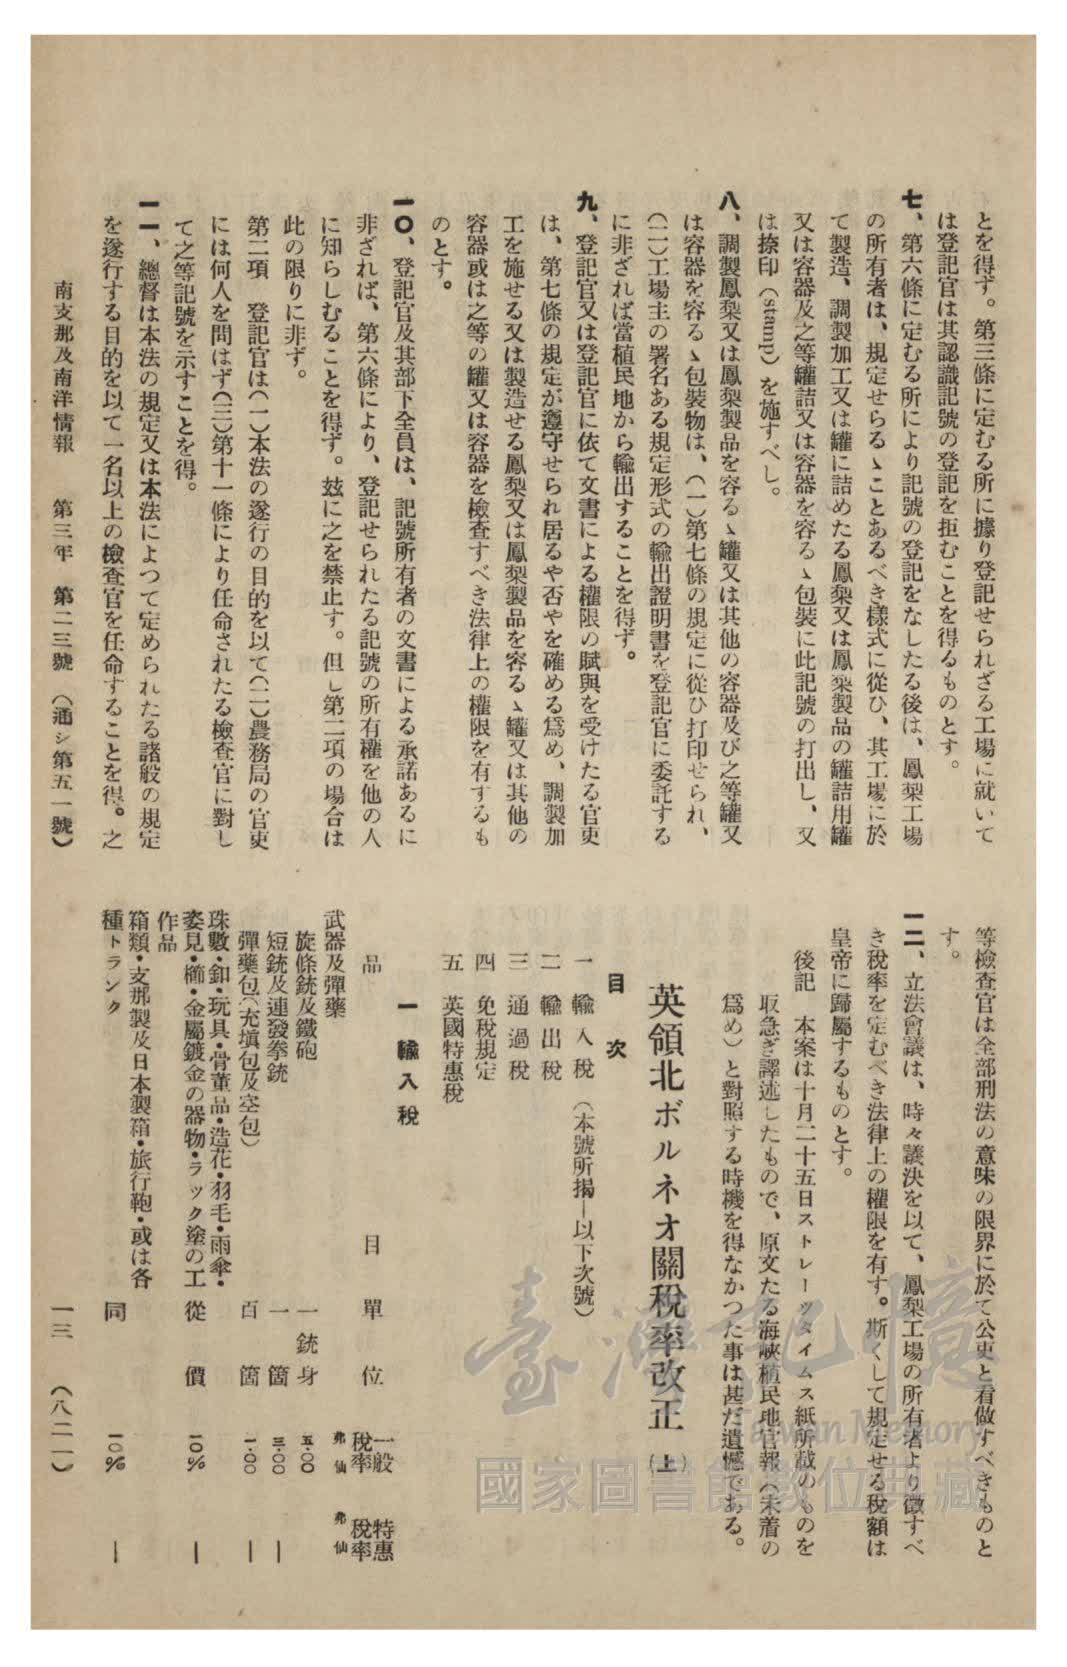 とを得ず。第三條に定むる所に據り登記せられざる工場に就いて
は登記官は其認識記號の登記を拒むことを得るものとす。
七、第六條に定むる所により記號の登記をなしたる後は、鳳梨工場
の所有者は、規定せらるゝことあるべき樣式に從ひ、其工場に於
て製造、調製加工又は罐に詰めたる鳳梨又は鳳梨製品の罐詰用罐
又は容器及之等罐詰又は容器を容るゝ包裝に此記號の打出し、又
は捺印（stamp）を施すべし。
八、調製鳳梨又は鳳梨製品を容るゝ罐又は其他の容器及び之等罐又
は容器を容るゝ包裝物は、（一）第七條の規定に從ひ打印せられ、
（二）工場主の署名ある規定形式の輸出證明書を登記官に委託する
に非ざれば當植民地から輸出することを得ず。
九、登記官又は登記官に依て文書による權限の賦與を受けたる官吏
は、第七條の規定が遵守せられ居るや否やを確める爲め、調製加
工を施せる又は製造せる鳳梨又は鳳梨製品を容るゝ罐又は其他の
容器或は之等の罐又は容器を檢查すべき法律上の權限を有するも
のとす。
一〇、登記官及其部下全員は、記號所有者の文書による承諾あるに
非ざれば、第六條により、登記せられたる記號の所有權を他の人
に知らしむることを得ず。玆に之を禁止す。但し第二項の場合は
此の限りに非ず。
第二項　登記官は（一）本法の遂行の目的を以て（二）農務局の官吏
には何人を問はず（三）第十一條により任命されたる檢查官に對し
て之等記號を示すことを得。
一一、總督は本法の規定又は本法によつて定められたる諸般の規定
を遂行する目的を以て一名以上の檢查官を任命することを得。之
南支那及南洋情報　第三年　第二三號　（通シ第五一號）
等檢查官は全部刑法の意味の限界に於て公吏と看做すべきものと
す。
一二、立法會議は、時々議決を以て、鳳梨工場の所有者より徵すべ
き稅率を定むべき法律上の權限を有す。斯くして規定せる稅額は
皇帝に歸屬するものとす。
後記　本案は十月二十五日ストレーツタイムス紙所載のものを
取急ぎ譯述したもので、原文たる海峽植民地官報（未着の
爲め）と對照する時機を得なかつた事は甚だ遺憾である。
英領北ボルネオ關稅率改正（上）
目　次
一　輸入稅　（本號所揭―以下次號）
二　輸出稅
三　通過稅
四　免稅規定
五　英國特惠稅
一　輸入稅
品　目　單　位　一般稅率　特惠稅率
弗仙　弗仙
武器及彈藥
旋條銃及鐵砲　一銃身　五・〇〇
短銃及連發拳銃　一箇　三・〇〇　―
彈藥包（充塡包及空包）　百箇　一・〇〇　―
珠數・釦・玩具・骨董品・造花・羽毛・雨傘・
姿見・櫛・金屬鍍金の器物・ラック塗の工
作品　從價　一〇％　―
箱類・支那製及日本製箱・旅行鞄・或は各
種トランク　同　一〇％　―
一三　（八二一）
臺灣記憶
Taiwan Memory
國家圖書館數位典藏